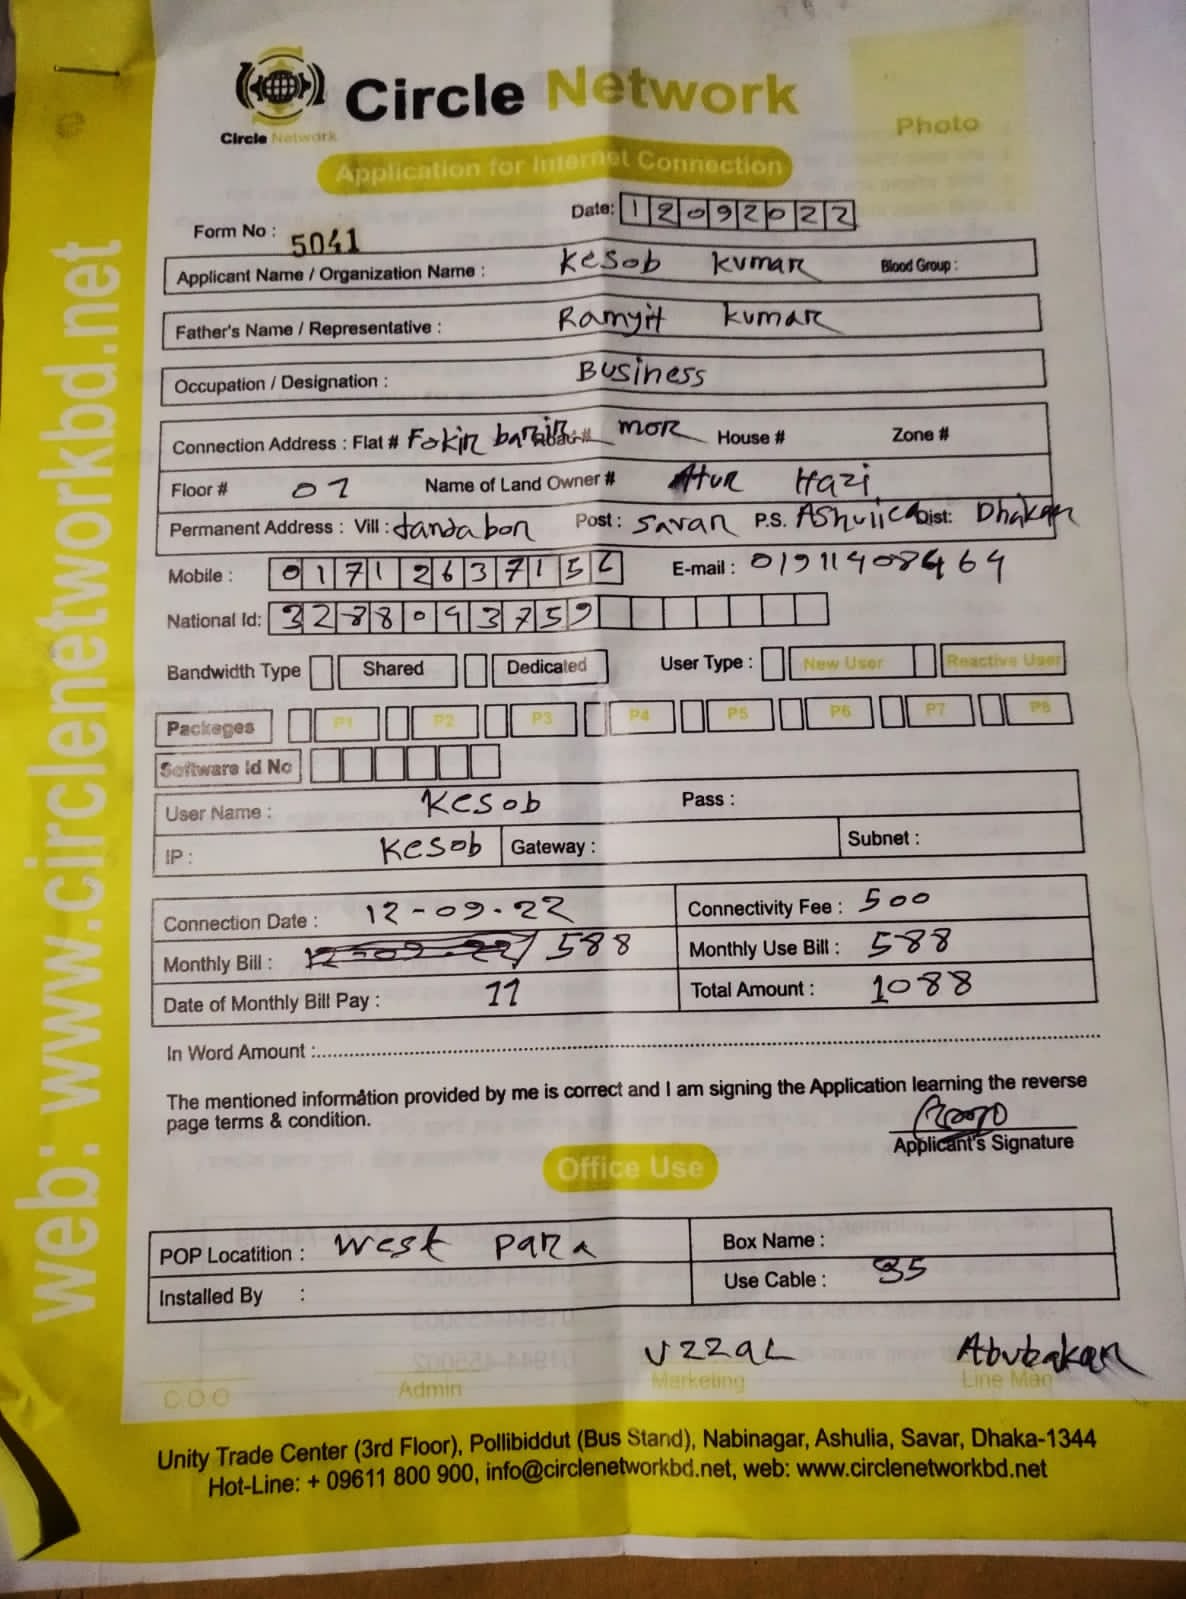 Circle Network
Circle Network
Photo
Application for Internet Connection
Date: 12092022
Form No : 5041
Applicant Name / Organization Name : Kesob Kumar Blood Group :
Father's Name / Representative : Ramyit Kumar
Occupation / Designation : Business
Connection Address : Flat # Fokir barir Road # mor House # Zone #
Floor # 01 Name of Land Owner # Hazi
Permanent Address : Vill : Post : Savar P.S. Dist: Dhakar
Mobile : 0171263715 E-mail : 01911408464
National Id: 3288093759
Bandwidth Type Shared Dedicated User Type : New User Reactive User
Packeges P1 P2 P3 P4 P5 P6 P7 P8
Software Id No
User Name : Kesob Pass :
IP : Kesob Gateway : Subnet :
Connection Date : 12-09-22 Connectivity Fee : 500
Monthly Bill : 588 Monthly Use Bill : 588
Date of Monthly Bill Pay : 11 Total Amount : 1088
In Word Amount :
The mentioned information provided by me is correct and I am signing the Application learning the reverse
page terms & condition.
Applicant's Signature
Office Use
POP Locatition : West Para Box Name :
Installed By : Use Cable : 35
Uzzal Abubakar
C.O.O Admin Marketing Line Man
Unity Trade Center (3rd Floor), Pollibiddut (Bus Stand), Nabinagar, Ashulia, Savar, Dhaka-1344
Hot-Line: + 09611 800 900, info@circlenetworkbd.net, web: www.circlenetworkbd.net
web: www.circlenetworkbd.net